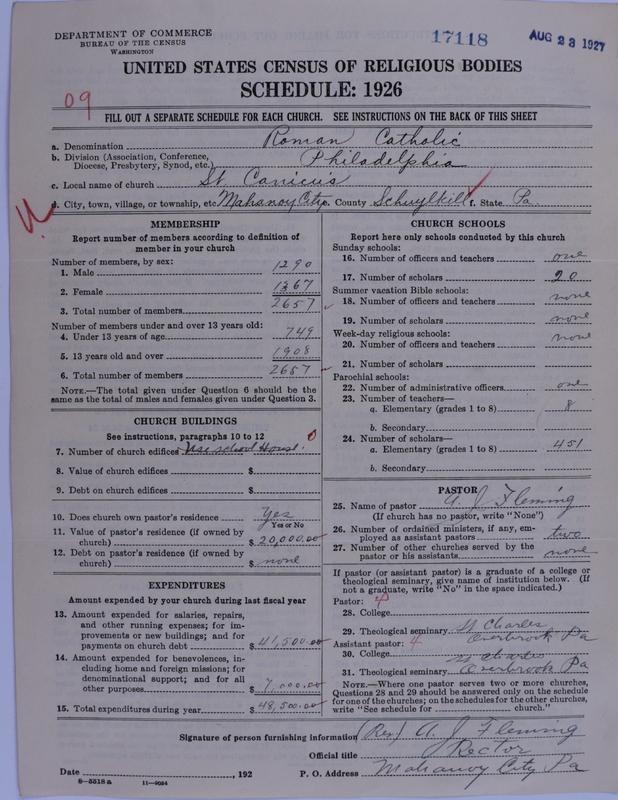 DEPARTMENT OF COMMERCE
BUREAU OF THE CENSUS
WASHINGTON
17118
AUG 23 1927
UNITED STATES CENSUS OF RELIGIOUS BODIES
SCHEDULE: 1926
09
FILL OUT A SEPARATE SCHEDULE FOR EACH CHURCH. SEE INSTRUCTIONS ON THE BACK OF THIS SHEET
a. Denomination Roman Catholic
b. Division (Association, Conference, Diocese, Presbytery, Synod, etc.) Philadelphia
c. Local name of church St Canicus
d. City, town, village, or township, etc Mahanoy City e. County Schuylkill f. State Pa
MEMBERSHIP
Report number of members according to definition of
member in your church
Number of members, by sex:
1. Male 1290
2. Female 1367
3. Total number of members 2657
Number of members under and over 13 years old:
4. Under 13 years of age 749
5. 13 years old and over 1908
6. Total number of members 2657
NOTE.—The total given under Question 6 should be the
same as the total of males and females given under Question 3.
CHURCH BUILDINGS
See instructions, paragraphs 10 to 12
7. Number of church edifices Use school House. 0
8. Value of church edifices $
9. Debt on church edifices $
10. Does church own pastor's residence Yes
Yes or No
11. Value of pastor's residence (if owned by
church) $ 20,000.00
12. Debt on pastor's residence (if owned by
church) $ none
EXPENDITURES
Amount expended by your church during last fiscal year
13. Amount expended for salaries, repairs,
and other running expenses; for im-
provements or new buildings; and for
payments on church debt $ 41,500.00
14. Amount expended for benevolences, in-
cluding home and foreign missions; for
denominational support; and for all
other purposes $ 7,000.00
15. Total expenditures during year $ 48,500.00
CHURCH SCHOOLS
Report here only schools conducted by this church
Sunday schools:
16. Number of officers and teachers one
17. Number of scholars 20
Summer vacation Bible schools:
18. Number of officers and teachers none
19. Number of scholars none
Week-day religious schools:
20. Number of officers and teachers none
21. Number of scholars
Parochial schools:
22. Number of administrative officers one
23. Number of teachers—
a. Elementary (grades 1 to 8) 8
b. Secondary
24. Number of scholars—
a. Elementary (grades 1 to 8) 451
b. Secondary
PASTOR
25. Name of pastor A J Fleming
(If church has no pastor, write "None")
26. Number of ordained ministers, if any, em-
ployed as assistant pastors two
27. Number of other churches served by the
pastor or his assistants none
If pastor (or assistant pastor) is a graduate of a college or
theological seminary, give name of institution below. (If
not a graduate, write "No" in the space indicated.)
Pastor: 4
28. College
29. Theological seminary St Charles Overbrook Pa
Assistant pastor: 4
30. College
31. Theological seminary St Charles Overbrook Pa
NOTE.—Where one pastor serves two or more churches,
Questions 28 and 29 should be answered only on the schedule
for one of the churches; on the schedules for the other churches,
write "See schedule for church."
Signature of person furnishing information (Rev) A. J. Fleming
Official title Rector
Date , 192 P. O. Address Mahanoy City Pa
8-5518a 11-9054